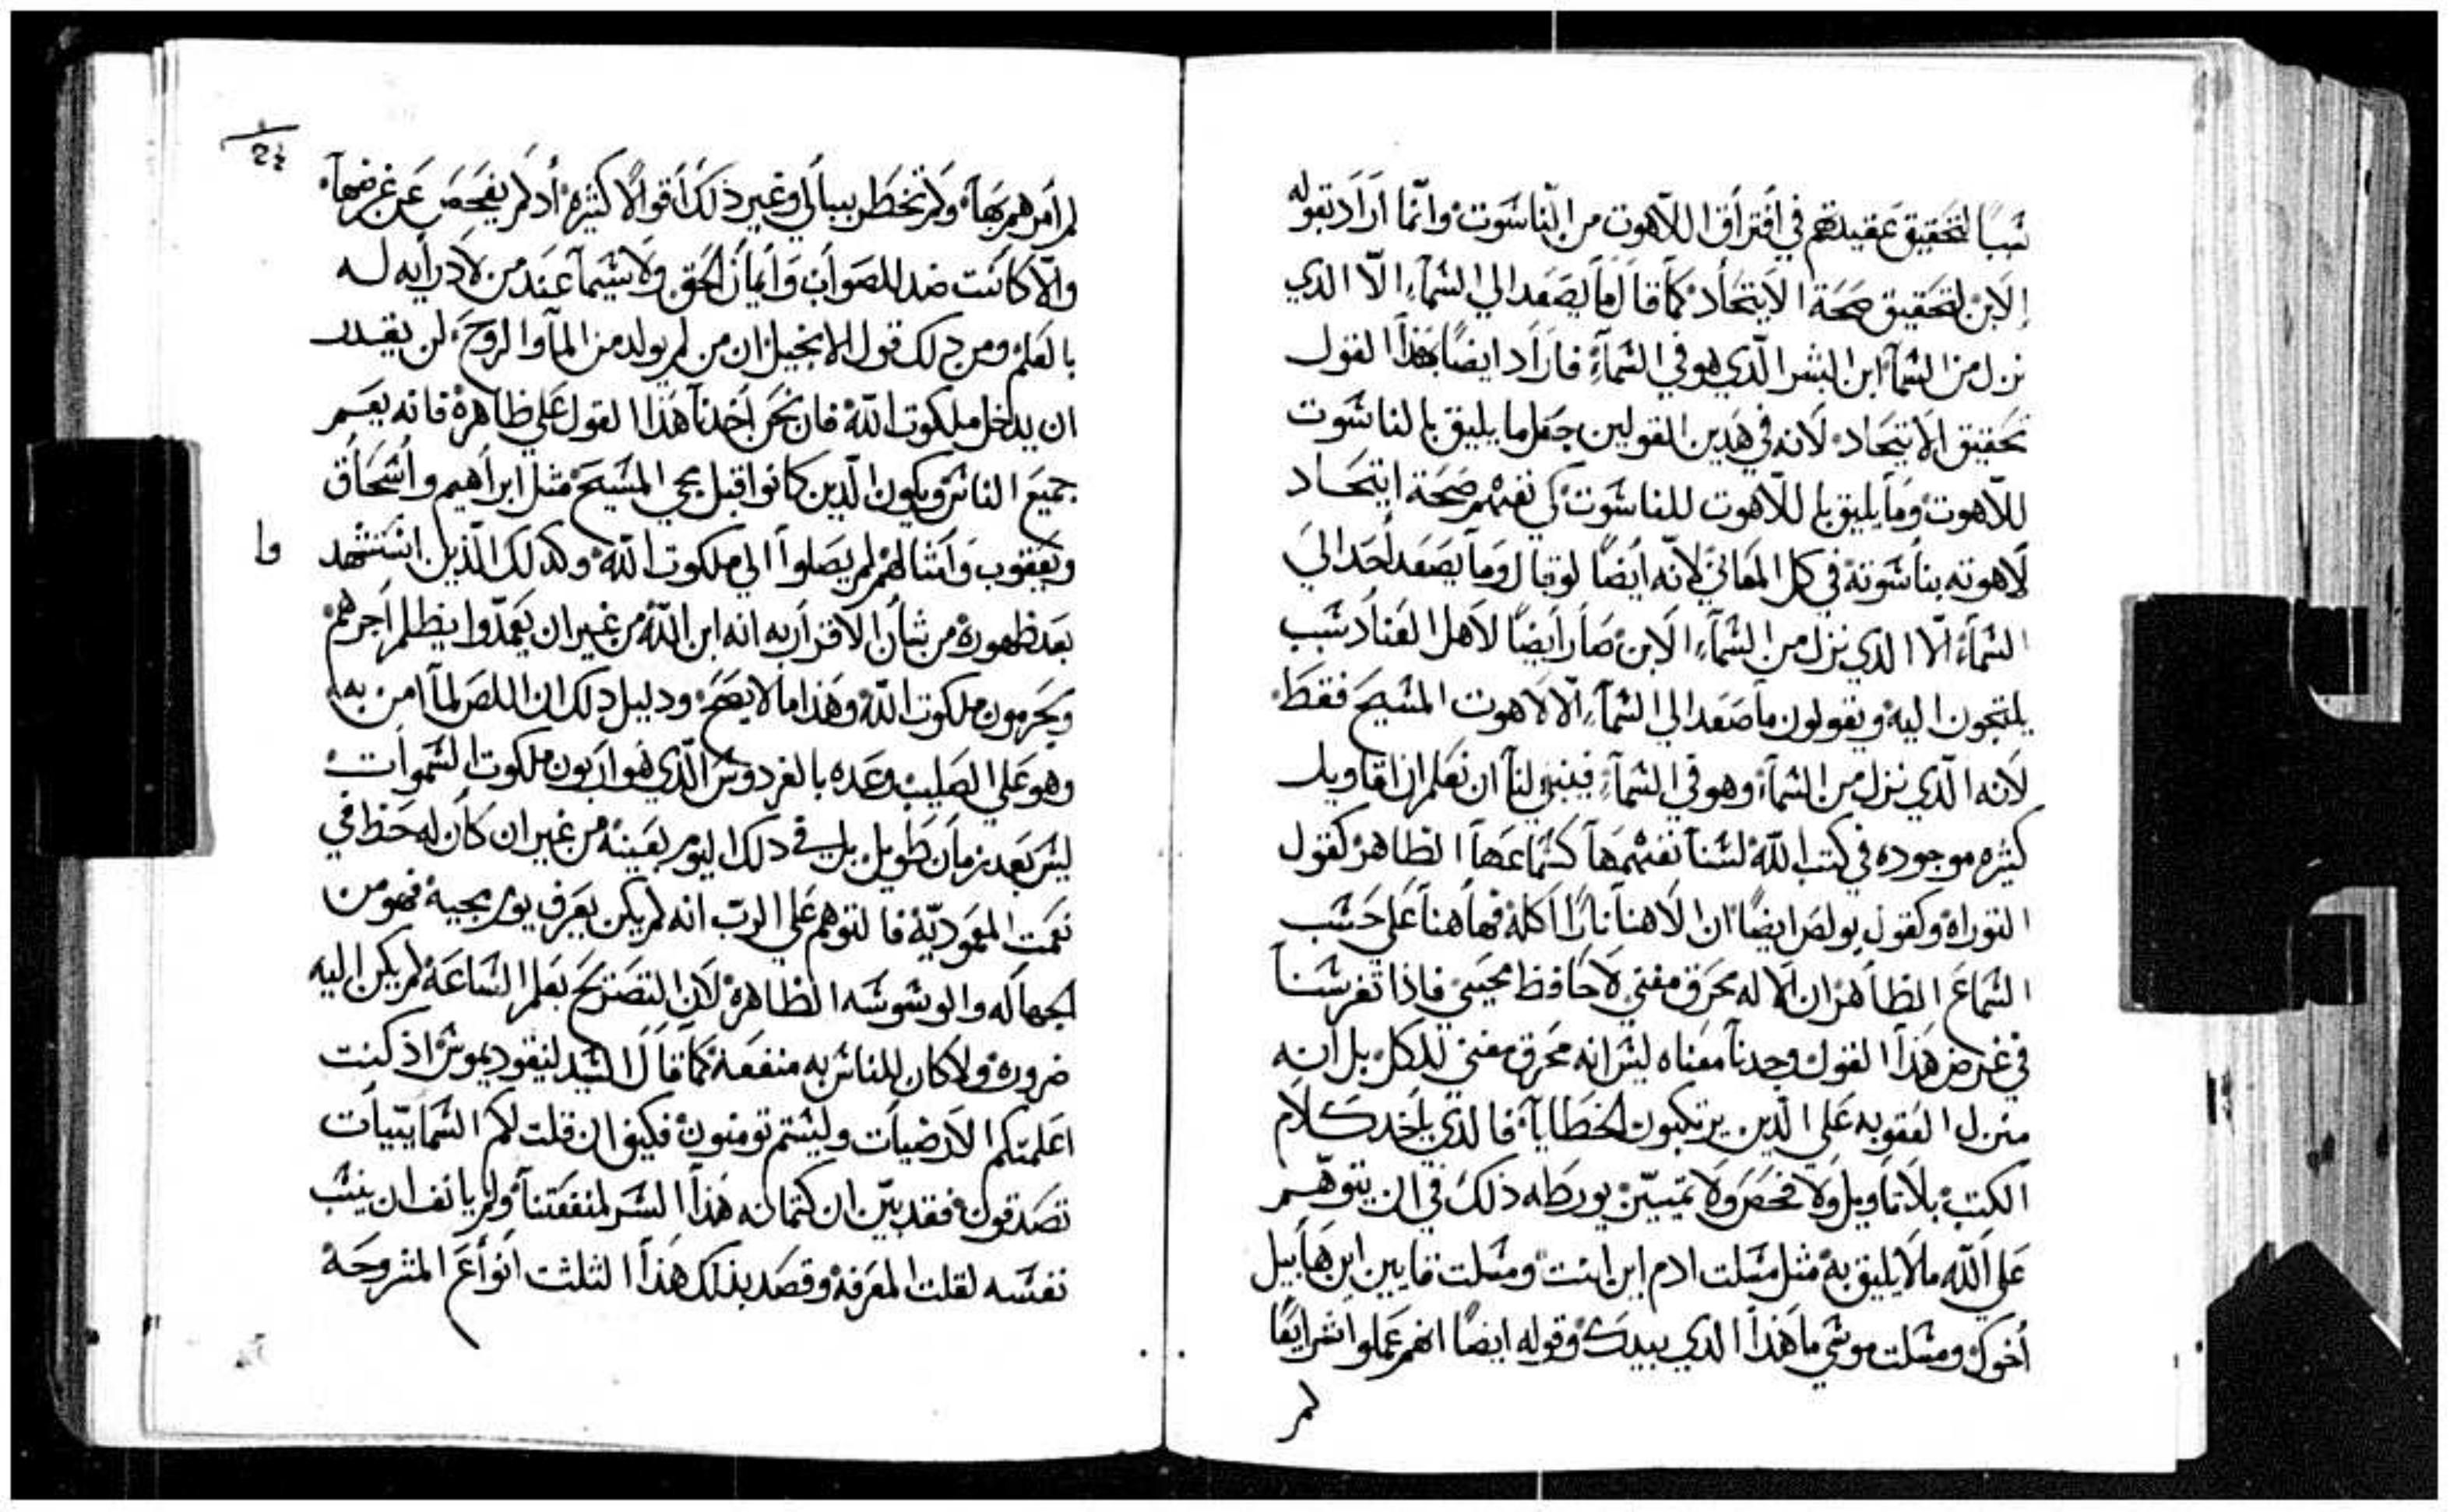 شببًا لتحقيق عقيدتهم في افتراق اللاهوت من الناشوت وانما اراد بقوله
الابن لتحقيق صحة الايتحاد كما قال ما يصعد الي الشمآء الّا الدي
نزل من الشمآ ابن البشر الّدي هو في الشمآء فاراد ايضًا بهذا القول
تحقيق الايتحاد لانه في هدين القولين جعل ما يليق بالناشوت
للاهوت وما يليق باللاهوت للناشوت كي نفهم صحة ايتحاد
لاهوته بناشوته في كل المعاني لانه ايضًا لو قال وما يصعد احد الي
الشمآء الّا الدي نزل من الشمآء الابن صار ايضًا لاهل العناد شبب
يلتجون اليه ويقولون ما صعد الي الشمآء الّا لاهوت المشيح فقط
لانه الّدي نزل من الشمآء وهو في الشمآء فينبغي لنا ان نعلم ان اقاويل
كثيره موجوده في كتب الله لشنا نفهمها كشماعها الظاهر كقول
التوراه وكقول بولص ايضًا ان الاهنا نارًا اكله فها هنا علي حشب
الشماع الظاهر ان الاله محرق مفني لا حافظ محيي فاذا تفرشنا
في غرض هذا القول وجدنا معناه ليش انه محرق مفني للكل بل انه
منزل العقوبه علي الّدين يرتكبون الخطايا فالدي ياخد كلام
الكتب بلا تاويل ولا فحص ولا تمييّز يورطه ذلك في ان يتوهّم
علي الله ما لا يليق به مثل مشلت ادم اين انت ومشلت قايين اين هابيل
أخوك ومشلت موشي ما هذا الدي بيدك وقوله ايضًا انهم عملوا شرايعًا
لم
لم امرهم بها ولم تخطر ببالي وغير ذلك أقوالًا كثيره أد لم يفحص عن غرضها
والّا كانت ضد للصواب وايمان الحق ولا شيما عند من لا درايه له
بالعلم ومن دلك قول الانجيل ان من لم يولد من المآ والروح لن يقدر
ان يدخل ملكوت الله فان نحن أخدنا هذا القول علي ظاهره فانه يعم
جميع الناش ويكون الّدين كانوا قبل مجي المشيح مثل ابراهيم واشحاق
ويعقوب وامثالهم لم يصلوا الي ملكوت الله وكدلك الّدين اشتشهد
وا
بعد ظهوره من شان الاقرار به انه ابن الله من غير ان يعمّدوا يظلم اجرهم
ويحرمون ملكوت الله وهذا ما لا يصح ودليل دلك ان اللص لما امن به
وهو علي الصليب وعده بالفردوش الّدي هو اربون ملكوت الشموات
ليش بعد زمان طويل بل في دلك اليوم بعينه من غير ان كان له حظ في
نعمت المعموديّة فالتوهم علي الرب انه لم يكن يعرف يوم مجيه فهو من
الجهاله والوشوشه الظاهره لان التصريح بعلم الشاعة لم يكن اليه
ضروره ولا كان للناش به منفعة كما قال الشيد لنيقوديموش اذ كنت
اعلمتكم الارضيات ولشتم تومنون فكيف ان قلت لكم الشماييات
تصدقون فقد بيّن ان كتمانه هذا الشر لمنفعتنا ولم يانف ان ينشب
نفشه لقلت المعرفة وقصد بذلك هذا الثلث انواع المشروحة